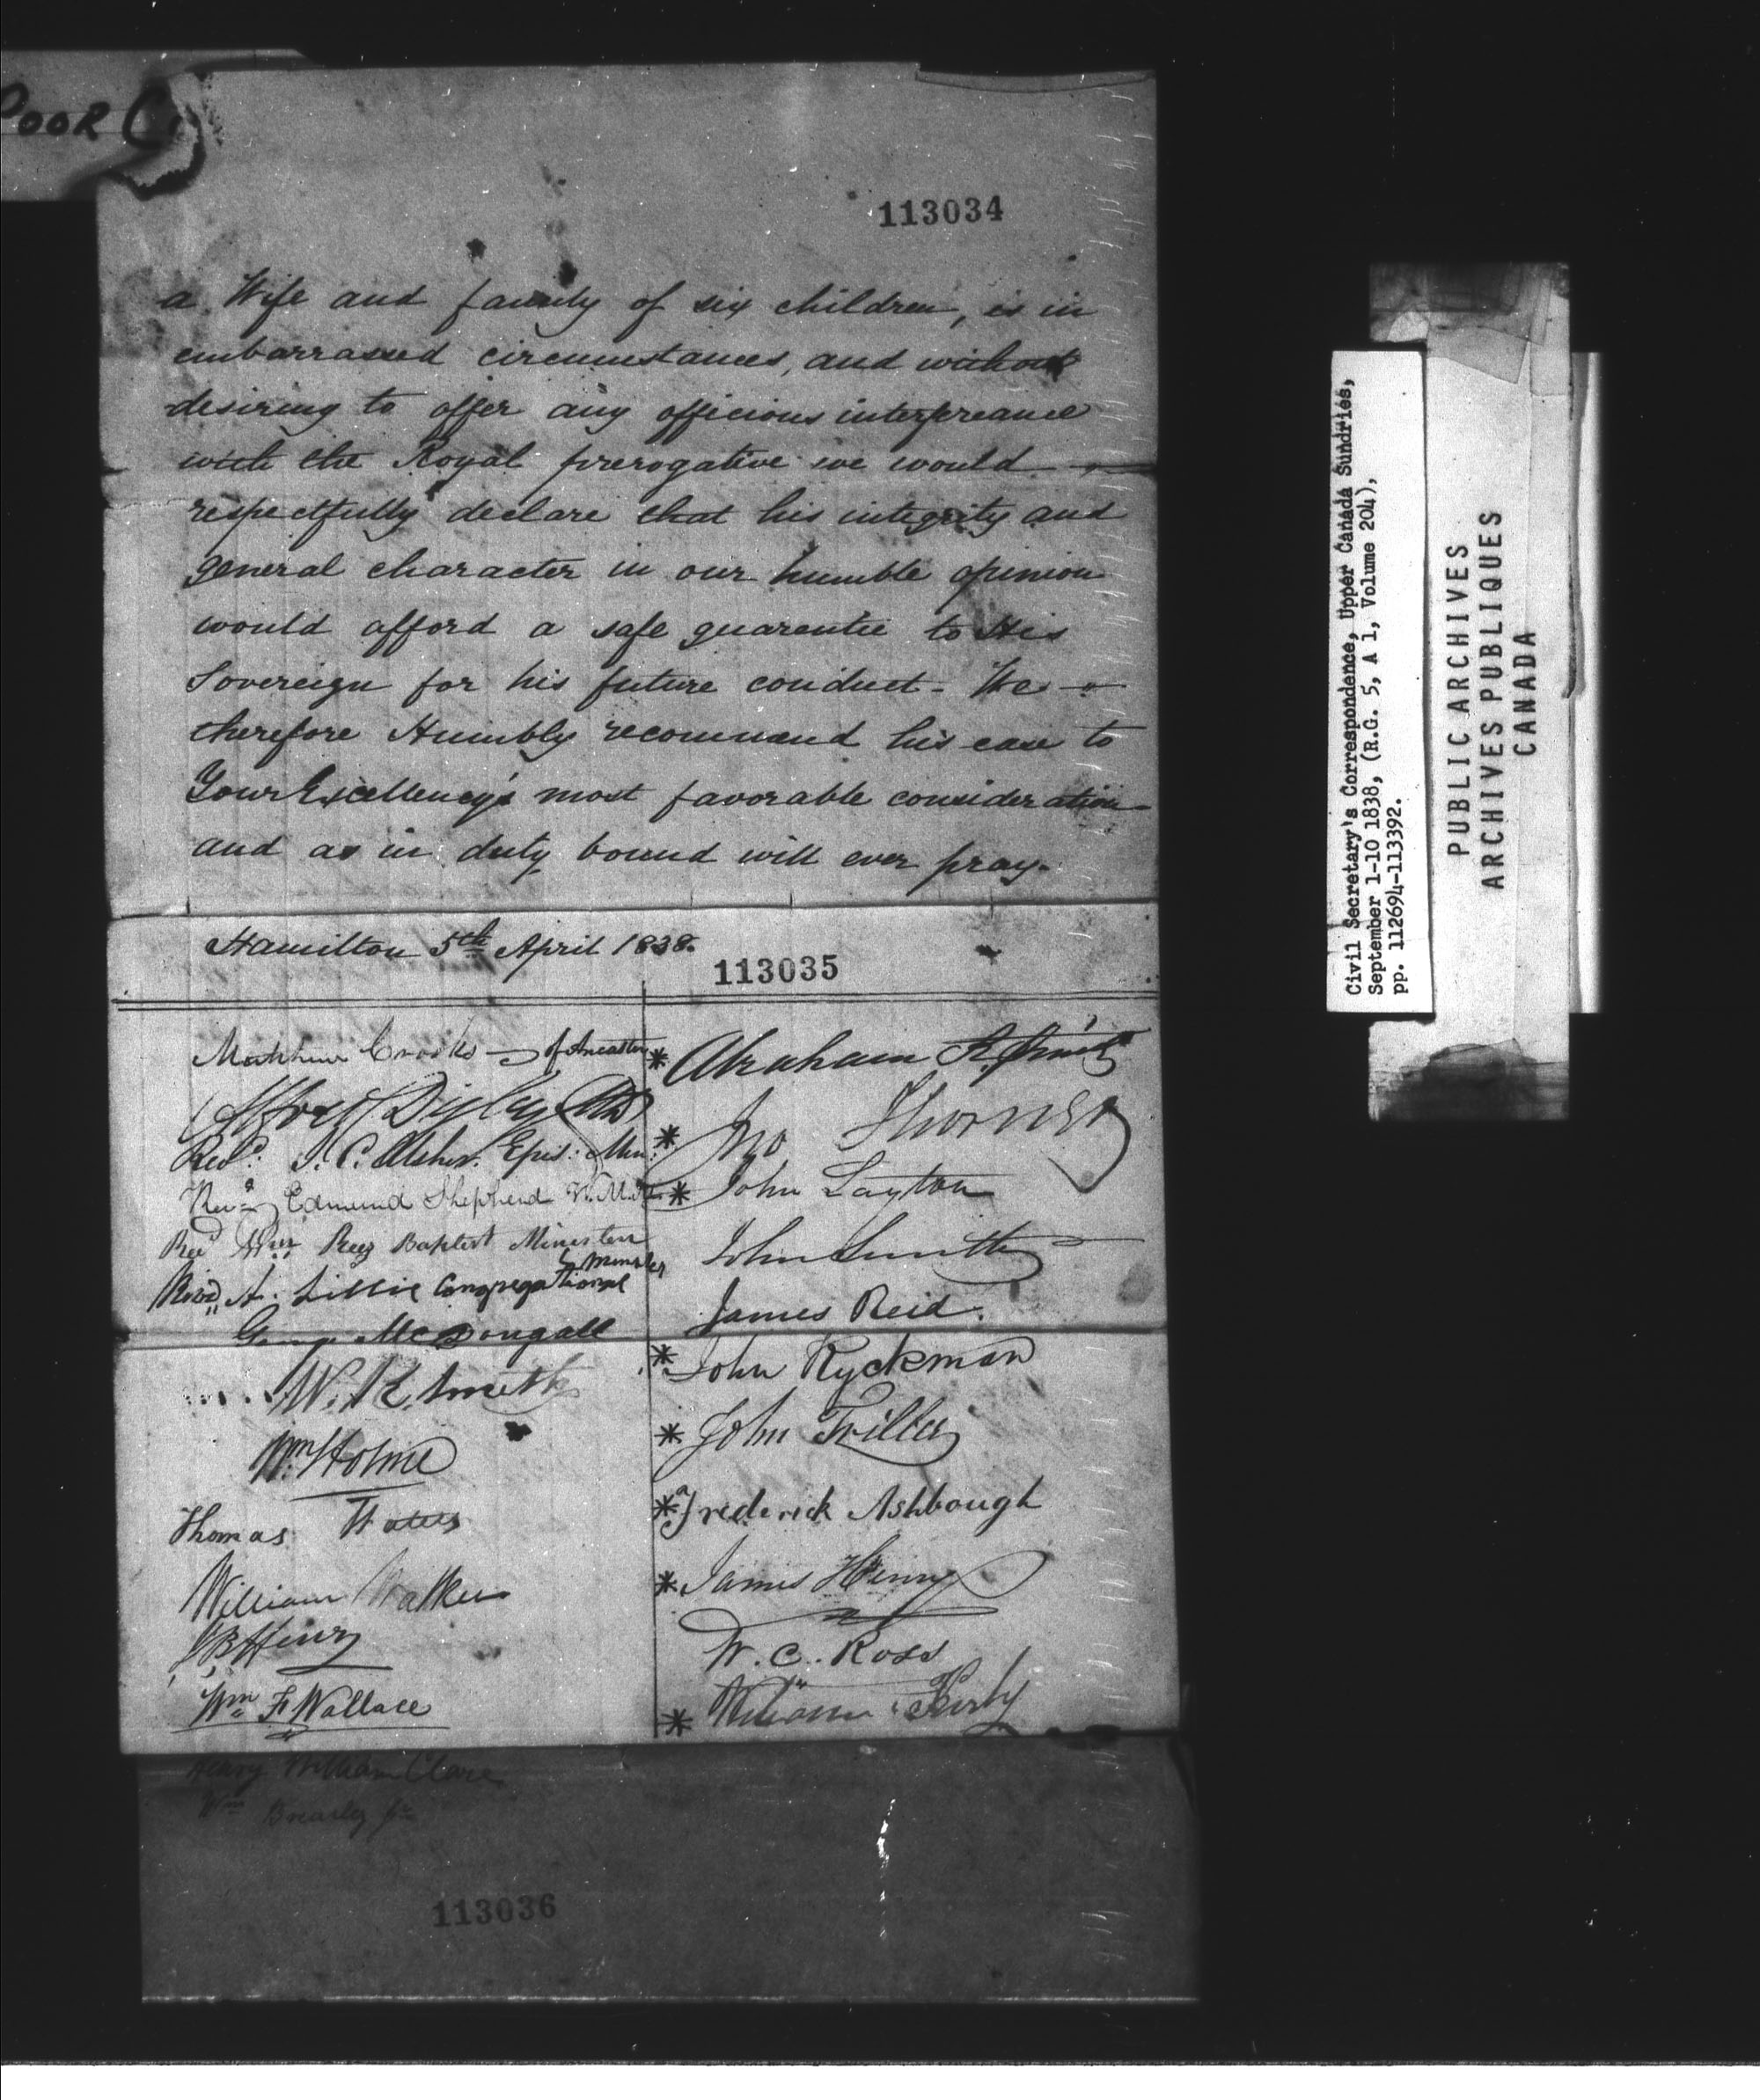 POOR C
113034
a Wife and family of six children, is in
embarrassed circumstances, and without
desiring to offer any officious interfereance
with the Royal prerogative we would
respectfully declare that his integrity and
general character in our humble opinion
would afford a safe guarentie to His
Sovereign for his future conduct - We
therefore Humbly recommend his case to
Your Excellency's most favorable consideration
and as in duty bound will ever pray.
Hamilton 5th April 1838.
113035
Matthew Crooks of Ancaster
Alfred Digby MD
Revd. J. C. Usher. Epis: Min:
Revd Edmund Shepherd
Revd Wm Rees Baptist Minister
Revd A. Lillie Congregational Minister
George McDougall
W. R. Smith
Wm Holme
Thomas Waters
William Walker
Henry
Wm F Wallace
Henry William Clare
Wm Brearley Jr
* Abraham K. Smith
* Jno Thorner
* John Layton
John Smith
James Reid.
* John Ryckman
* John Triller
* Frederick Ashbough
* James Henry
W. C. Ross
* William Kirby
113036
Civil Secretary's Correspondence, Upper Canada Sundries,
September 1-10 1838, (R.G. 5, A 1, Volume 204),
pp. 112694-113392.
PUBLIC ARCHIVES
ARCHIVES PUBLIQUES
CANADA